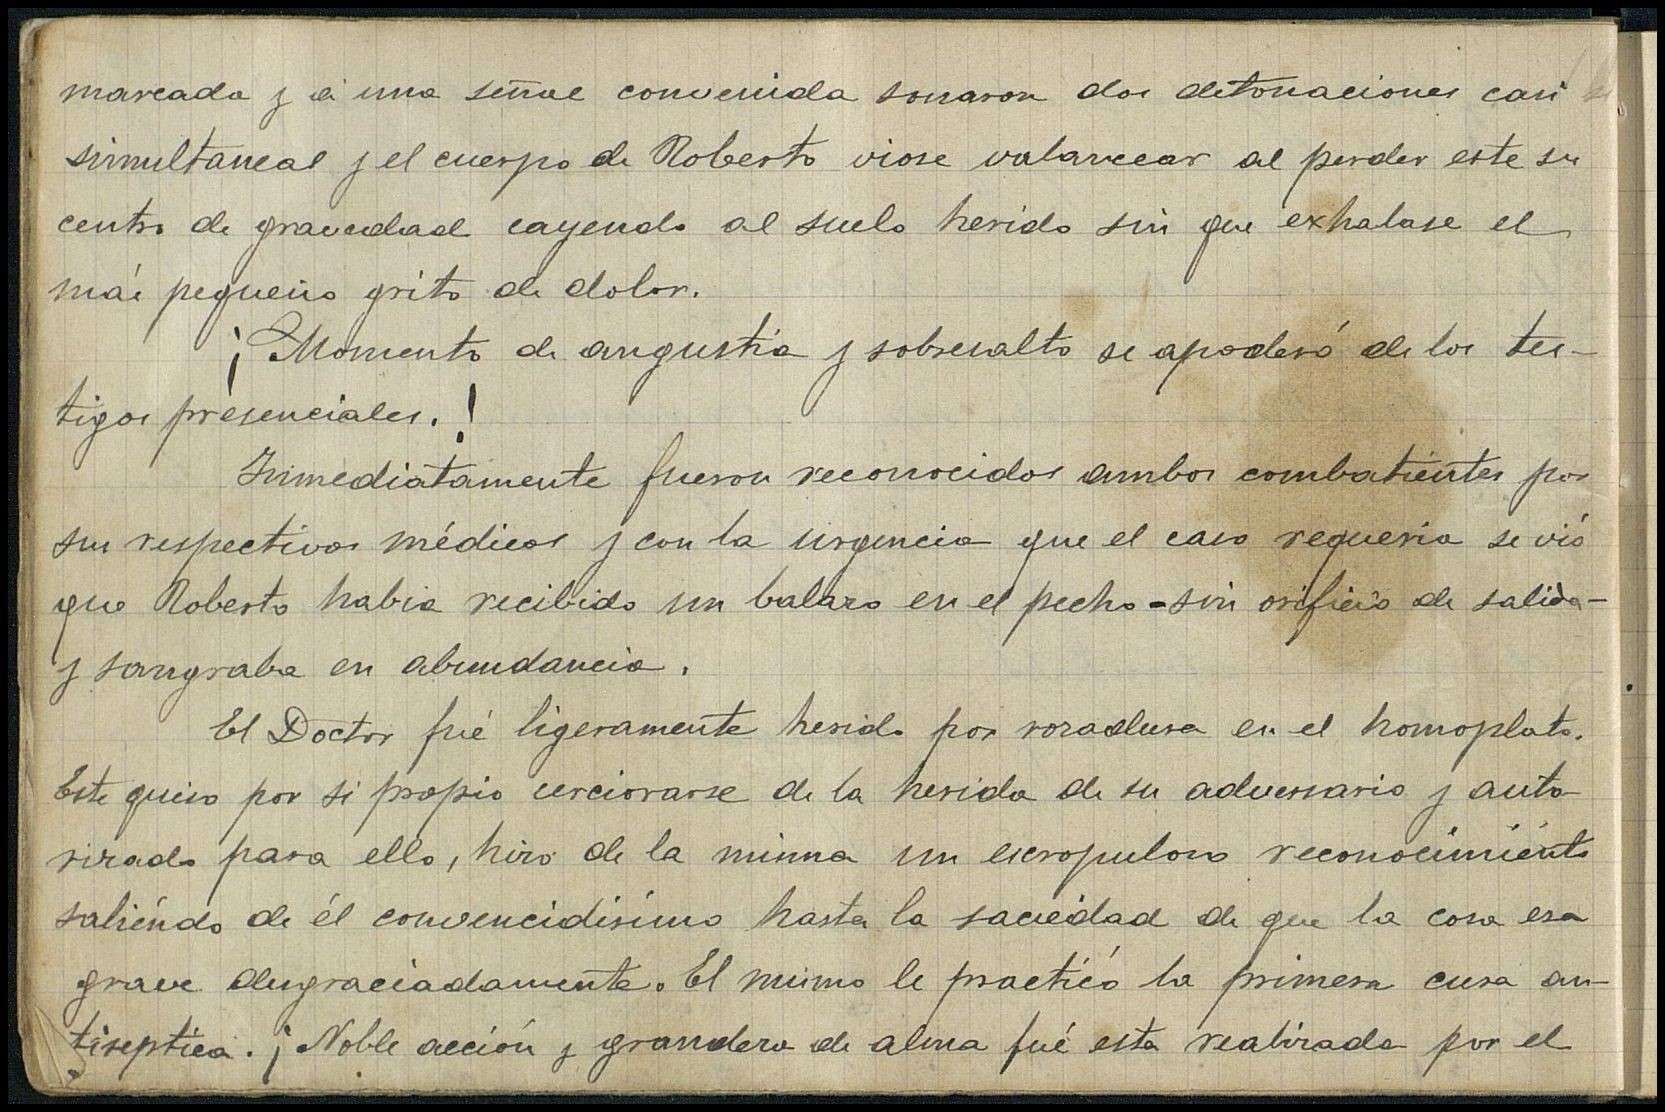 marcada y á una señal convenida sonaron dos detonaciones casi
simultaneas y el cuerpo de Roberto viose valancear al perder este su
centro de gravedad cayendo al suelo herido sin que exhalase el
más pequeño grito de dolor.
¡Momento de angustia y sobresalto se apoderó de los tes-
tigos presenciales.!
Inmediatamente fueron reconocidos ambos combatientes por
sus respectivos médicos y con la urgencia que el caso requeria se vió
que Roberto habia recibido un balazo en el pecho - sin orificio de salida -
y sangraba en abundancia.
El Doctor fué ligeramente herido por rozadura en el homoplato.
Este quiso por si propio cerciorarse de la herida de su adversario y auto-
rizado para ello, hizo de la misma un escropuloso reconocimiento
saliéndo de él convencidisimo hasta la saciedad de que la cosa era
grave desgraciadamente. El mismo le practicó la primera cura an-
tiseptica. ¡Noble acción y grandeza de alma fué esta realizada por el